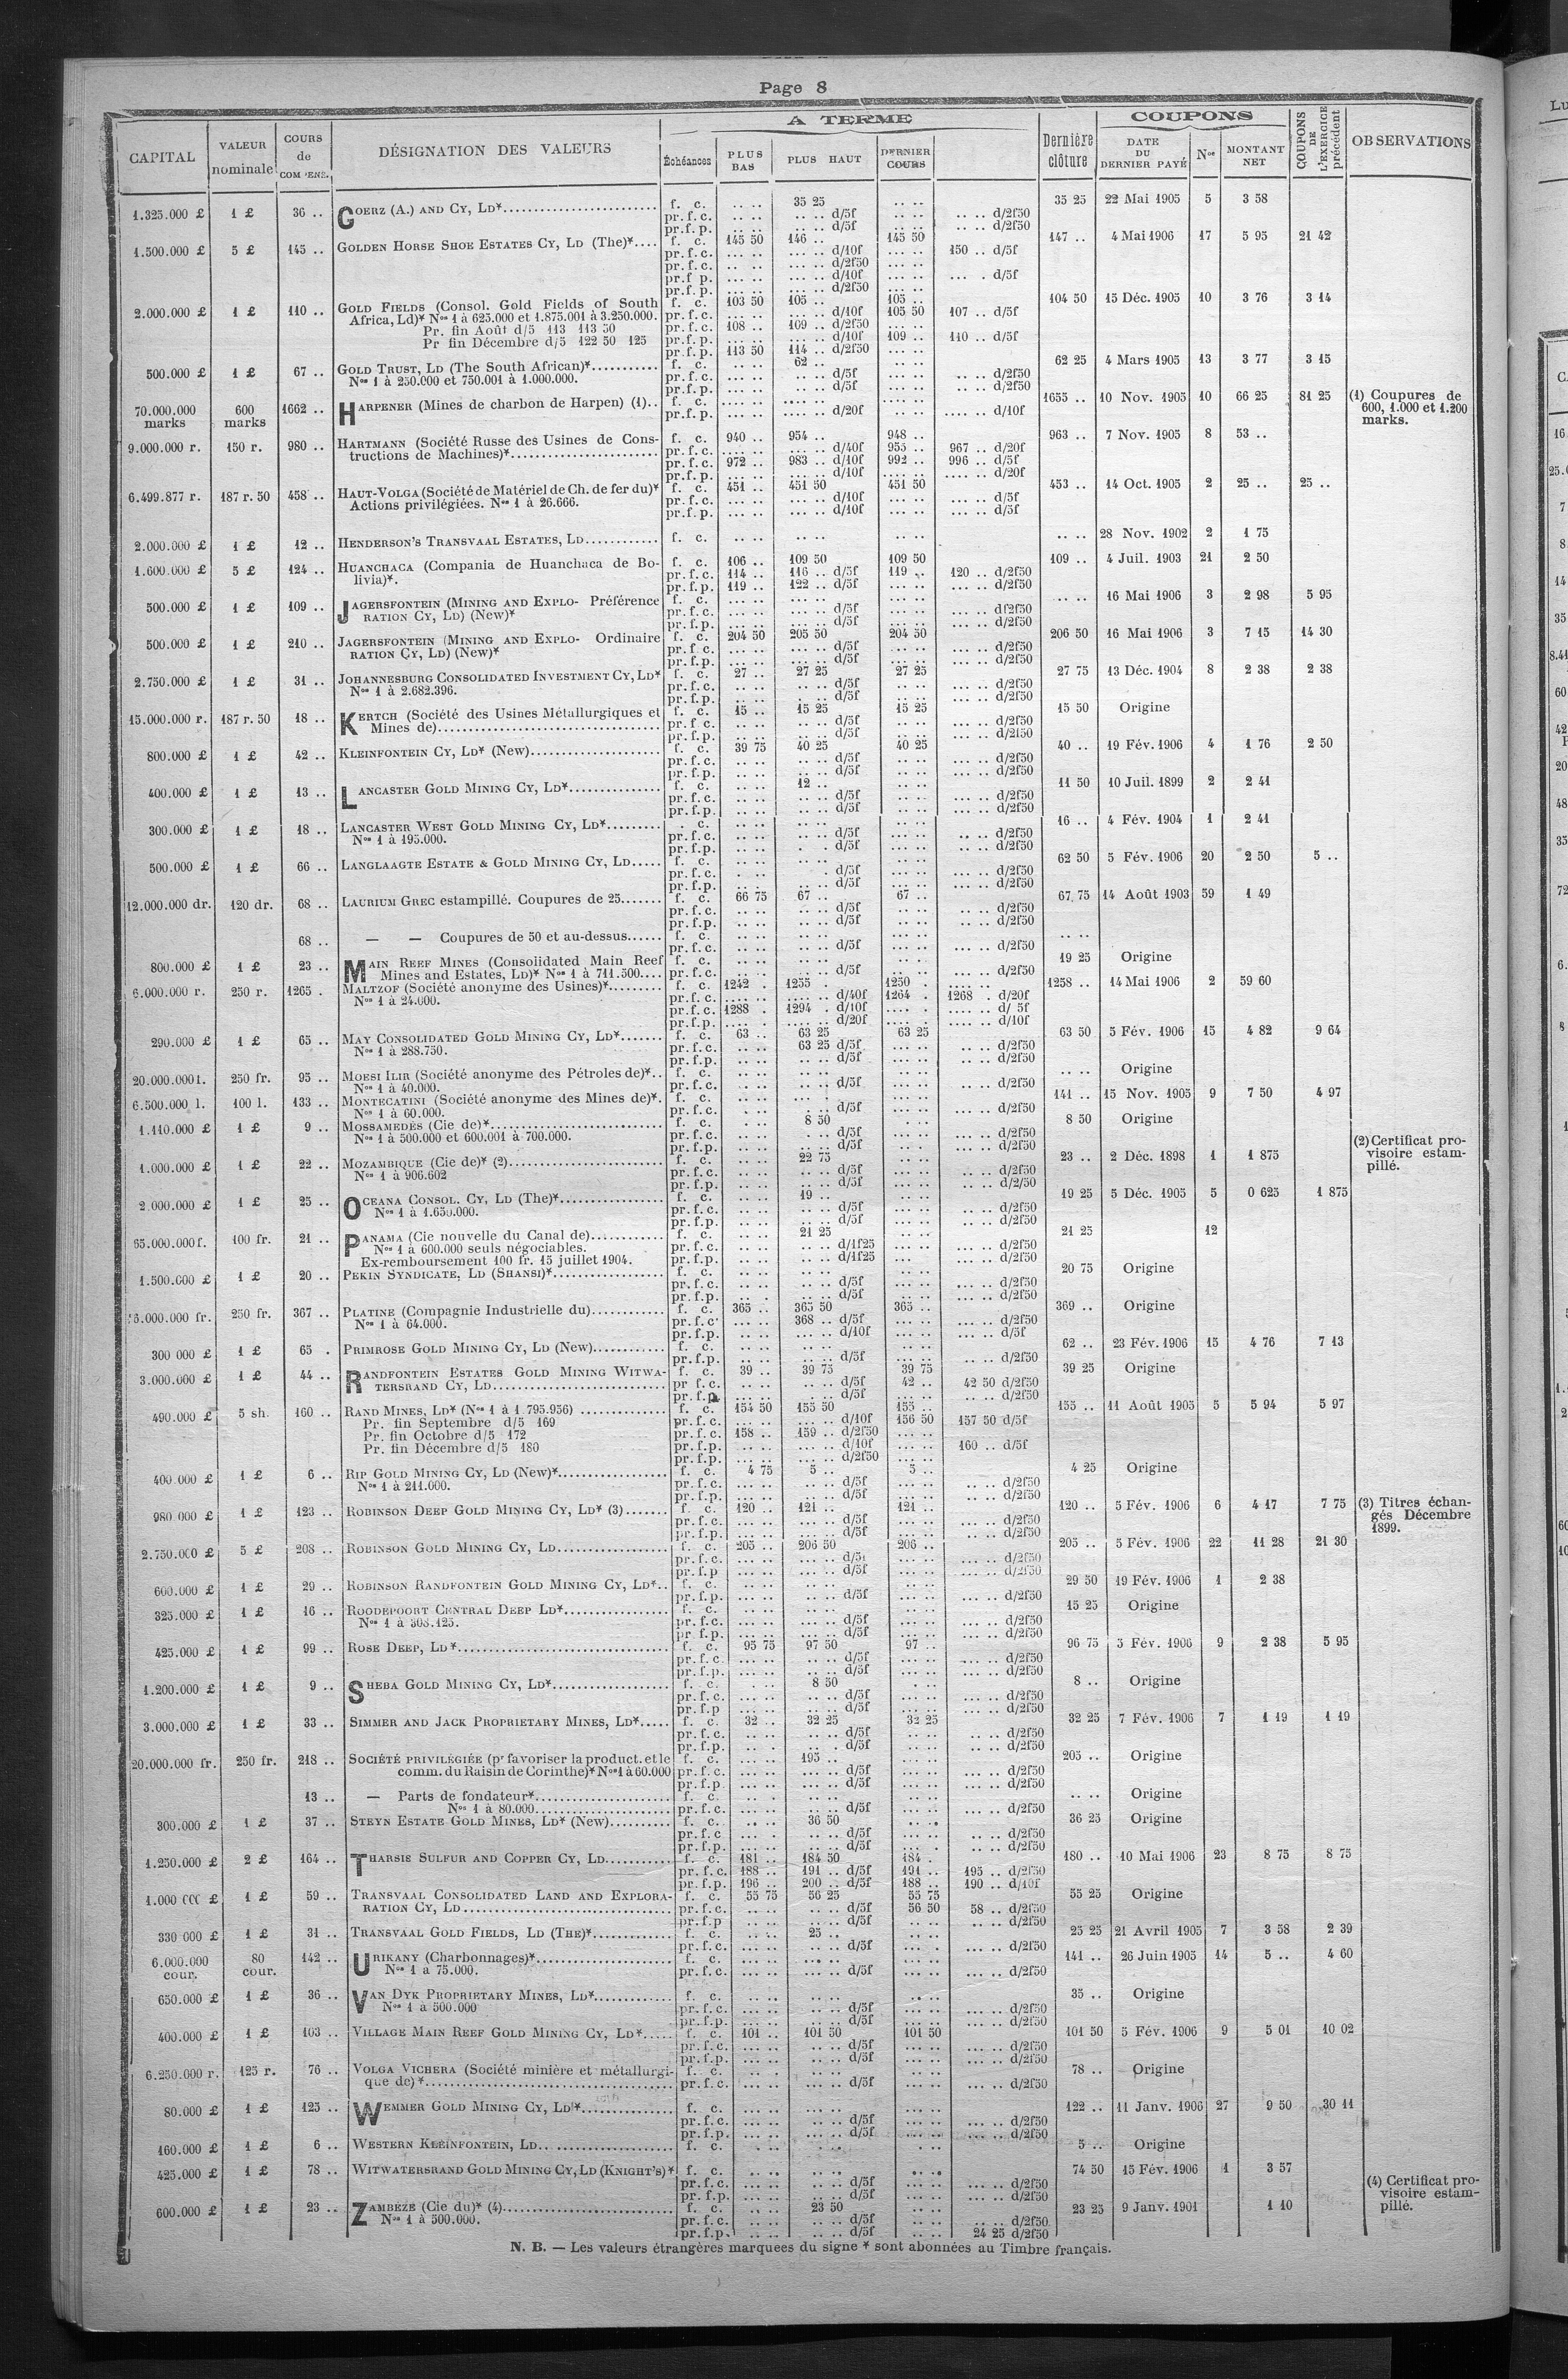 Page 8
A TERME
COUPONS
CAPITAL | VALEUR nominale | COURS de | DÉSIGNATION DES VALEURS | Échéances | PLUS BAS | PLUS HAUT | DERNIER COURS | Dernière clôture | DATE DU DERNIER PAYÉ | Nos | MONTANT NET | COUPONS DE L'EXERCICE précédent | OBSERVATIONS
1.325.000 £ 1 £ 36 .. GOERZ (A.) AND CY, LD* f. c. .. .. 35 25 .. .. 35 25 22 Mai 1905 5 3 58
pr.f.c. .. .. .. .. d/5f .. .. .. .. d/2f50
pr.f.p. .. .. .. .. d/5f .. .. .. .. d/2f50
1.500.000 £ 5 £ 145 .. GOLDEN HORSE SHOE ESTATES CY, LD (The)* f. c. 145 50 146 .. 145 50 147 .. 4 Mai 1906 17 5 95 21 42
pr.f.c. ... .. ... .. d/10f ... .. 150 .. d/5f
pr.f.c. ... .. d/2f50
pr.f.p. ... .. ... .. d/10f ... .. ... . d/5f
pr.f.p. ... .. ... .. d/2f50 ... ..
2.000.000 £ 1 £ 110 .. GOLD FIELDS (Consol. Gold Fields of South f. c. 103 50 105 .. 105 .. 104 50 15 Déc. 1905 10 3 76 3 14
Africa, Ld)* Nos 1 à 625.000 et 1.875.001 à 3.250.000. pr.f.c. ... .. ... .. d/10f 105 50 107 .. d/5f
Pr. fin Août d/5 113 113 50 pr.f.c. 108 .. 109 .. d/2f50 ... ..
Pr fin Décembre d/5 122 50 125 pr.f.p. ... .. ... .. d/10f 109 .. 110 .. d/5f
pr.f.p. 113 50 114 .. d/2f50 ... ..
500.000 £ 1 £ 67 .. GOLD TRUST, LD (The South African)* f. c. .. .. 62 .. .. .. 62 25 4 Mars 1905 13 3 77 3 15
Nos 1 à 250.000 et 750.001 à 1.000.000. pr.f.c. .. .. .. .. d/5f .. .. .. .. d/2f50
pr.f.p. .. .. .. .. d/5f .. .. .. .. d/2f50
70.000.000 marks 600 marks 1662 .. HARPENER (Mines de charbon de Harpen) (1).. f. c. 1655 .. 10 Nov. 1905 10 66 25 81 25 (1) Coupures de 600, 1.000 et 1.200 marks.
pr.f.p. .... .. .... .. d/20f .... .. .... .. d/10f
9.000.000 r. 150 r. 980 .. HARTMANN (Société Russe des Usines de Cons- f. c. 940 .. 954 .. 948 .. 963 .. 7 Nov. 1905 8 53 ..
tructions de Machines)* pr.f.c. ... .. ... .. d/40f 955 .. 967 .. d/20f
pr.f.c. 972 .. 983 .. d/10f 992 .. 996 .. d/5f
pr.f.p. ... .. d/10f ... .. .... .. d/20f
6.499.877 r. 187 r. 50 458 .. HAUT-VOLGA (Société de Matériel de Ch. de fer du)* f. c. 451 .. 451 50 451 50 453 .. 14 Oct. 1905 2 25 .. 25 ..
Actions privilégiées. Nos 1 à 26.666. pr.f.c. ... .. ... .. d/10f ... .. ... .. d/5f
pr.f.p. ... .. ... .. d/10f ... .. ... .. d/5f
2.000.000 £ 1 £ 12 .. HENDERSON'S TRANSVAAL ESTATES, LD f. c. .. .. .. .. .. .. .. .. 28 Nov. 1902 2 1 75
1.600.000 £ 5 £ 124 .. HUANCHACA (Compania de Huanchaca de Bo- f. c. 106 .. 109 50 109 50 109 .. 4 Juil. 1903 21 2 50
livia)*. pr.f.c. 114 .. 116 .. d/5f 119 .. 120 .. d/2f50
pr.f.p. 119 .. 122 .. d/5f ... .. ... .. d/2f50
500.000 £ 1 £ 109 .. JAGERSFONTEIN (MINING AND EXPLO- Préférence f. c. ... .. ... .. ... .. .. .. 16 Mai 1906 3 2 98 5 95
RATION CY, LD) (New)* pr.f.c. ... .. ... .. d/5f ... .. ... .. d/2f50
pr.f.p. ... .. ... .. d/5f ... .. ... .. d/2f50
500.000 £ 1 £ 210 .. JAGERSFONTEIN (MINING AND EXPLO- Ordinaire f. c. 204 50 205 50 204 50 206 50 16 Mai 1906 3 7 15 14 30
RATION CY, LD) (New)* pr.f.c. ... .. ... .. d/5f ... .. ... .. d/2f50
pr.f.p. ... .. ... .. d/5f ... .. ... .. d/2f50
2.750.000 £ 1 £ 31 .. JOHANNESBURG CONSOLIDATED INVESTMENT CY, LD* f. c. 27 .. 27 25 27 25 27 75 13 Déc. 1904 8 2 38 2 38
Nos 1 à 2.682.396. pr.f.c. .. .. .. .. d/5f .. .. ... .. d/2f50
pr.f.p. .. .. .. .. d/5f .. .. ... .. d/2f50
15.000.000 r. 187 r. 50 18 .. KERTCH (Société des Usines Métallurgiques et f. c. 15 .. 15 25 15 25 15 50 Origine
Mines de) pr.f.c. .. .. .. .. d/5f .. .. ... .. d/2f50
pr.f.p. .. .. .. .. d/5f .. .. ... .. d/2f50
800.000 £ 1 £ 42 .. KLEINFONTEIN CY, LD* (New) f. c. 39 75 40 25 40 25 40 .. 19 Fév. 1906 4 1 76 2 50
pr.f.c. .. .. .. .. d/5f .. .. ... .. d/2f50
pr.f.p. .. .. .. .. d/5f .. .. ... .. d/2f50
400.000 £ 1 £ 13 .. LANCASTER GOLD MINING CY, LD* f. c. .. .. 12 .. .. .. 11 50 10 Juil. 1899 2 2 41
pr.f.c. .. .. .. .. d/5f .. .. ... .. d/2f50
pr.f.p. .. .. .. .. d/5f .. .. ... .. d/2f50
300.000 £ 1 £ 18 .. LANCASTER WEST GOLD MINING CY, LD* . c. .. .. .. .. .. .. 16 .. 4 Fév. 1904 1 2 41
Nos 1 à 195.000. pr.f.c. .. .. .. .. d/5f .. .. .. .. d/2f50
pr.f.p. .. .. . . d/5f .. .. .. .. d/2f50
500.000 £ 1 £ 66 .. LANGLAAGTE ESTATE & GOLD MINING CY, LD f. c. 62 50 5 Fév. 1906 20 2 50 5 ..
pr.f.c. . .. . d/5f .. .. ... .. d/2f50
pr.f.p. .. . .. .. d/5f .. .. ... .. d/2f50
12.000.000 dr. 120 dr. 68 .. LAURIUM GREC estampillé. Coupures de 25 f. c. 66 75 67 .. 67 .. 67,75 14 Août 1903 59 1 49
pr.f.c. .. .. .. .. d/5f .. .. .. .. d/2f50
pr.f.p. .. .. .. .. d/5f .. .. .. .. d/2f50
68 .. — — Coupures de 50 et au-dessus f. c. .. .. .. .. .. .. .. ..
pr.f.c. .. .. .. .. d/5f .. .. ... .. d/2f50
800.000 £ 1 £ 23 .. MAIN REEF MINES (Consolidated Main Reef f. c. .. .. .. .. .. .. 19 25 Origine
Mines and Estates, LD)* Nos 1 à 711.500.... pr.f.c. .. .. .. .. d/5f .. .. ... .. d/2f50
6.000.000 r. 250 r. 1265 . MALTZOF (Société anonyme des Usines)* f. c. 1242 . 1255 . 1250 . 1258 .. 14 Mai 1906 2 59 60
Nos 1 à 24.000. pr.f.c. .... .. .... .. d/40f 1264 . 1268 . d/20f
pr.f.c. 1288 . 1294 . d/10f .... . .... .. d/ 5f
pr.f.p. .... . .... .. d/20f .... . .... .. d/10f
290.000 £ 1 £ 65 .. MAY CONSOLIDATED GOLD MINING CY, LD* f. c. 63 .. 63 25 63 25 63 50 5 Fév. 1906 15 4 82 9 64
Nos 1 à 288.750. pr.f.c. .. .. 63 25 d/5f ... .. .. .. d/2f50
pr.f.p. .. .. .. .. d/5f ... .. .. .. d/2f50
20.000.000 l. 250 fr. 95 .. MOESI ILIR (Société anonyme des Pétroles de)*.. f. c. .. .. .. .. .. .. .. .. Origine
Nos 1 à 40.000. pr.f.c. .. .. .. .. d/5f .. .. .. .. d/2f50
6.500.000 l. 100 l. 133 .. MONTECATINI (Société anonyme des Mines de)*. f. c. 141 .. 15 Nov. 1905 9 7 50 4 97
Nos 1 à 60.000. pr.f.c. . .. . .. d/5f ... .. ... .. d/2f50
1.110.000 £ 1 £ 9 .. MOSSAMEDÈS (Cie de)* f. c. . .. 8 50 . .. 8 50 Origine
Nos 1 à 500.000 et 600.001 à 700.000. pr.f.c. .. .. . .. d/5f ... .. ... .. d/2f50
pr.f.p. .. .. .. .. d/5f ... .. ... .. d/2f50
1.000.000 £ 1 £ 22 .. MOZAMBIQUE (Cie de)* (2) f. c. .. .. 22 75 .. .. 23 .. 2 Déc. 1898 1 1 875 (2) Certificat provisoire estampillé.
Nos 1 à 906.602 pr.f.c. .. .. .. .. d/5f ... .. ... .. d/2f50
pr.f.p. .. .. .. .. d/5f ... .. ... .. d/2/50
2.000.000 £ 1 £ 25 .. OCEANA CONSOL. CY, LD (The)* f. c. .. .. 19 .. .. .. 19 25 5 Déc. 1905 5 0 625 1 875
Nos 1 à 1.650.000. pr.f.c. .. .. .. .. d/5f ... .. ... .. d/2f50
pr.f.p. .. .. .. .. d/5f .. .. ... .. d/2f50
65.000.000 f. 100 fr. 21 .. PANAMA (Cie nouvelle du Canal de) f. c. .. .. 21 25 ... .. 21 25 12
Nos 1 à 600.000 seuls négociables. pr.f.c. .. .. .. .. d/1f25 ... .. ... .. d/2f50
Ex-remboursement 100 fr. 15 juillet 1904. pr.f.p. .. .. .. .. d/1f25 ... ... .. d/2f50
1.500.000 £ 1 £ 20 .. PEKIN SYNDICATE, LD (SHANSI)* f. c. .. .. .. .. .. .. 20 75 Origine
pr.f.c. .. .. .. .. d/5f ... .. ... .. d/2f50
pr.f.p. .. . .. .. d/5f ... .. ... .. d/2f50
16.000.000 fr. 250 fr. 367 .. PLATINE (Compagnie Industrielle du) f. c. 365 .. 365 50 365 .. 369 .. Origine
Nos 1 à 64.000. pr.f.c. ... .. 368 .. d/5f ... .. ... .. d/2f50
pr.f.p. ... .. ... .. d/10f ... .. ... .. d/5f
300 000 £ 1 £ 65 . PRIMROSE GOLD MINING CY, LD (New) f. c. .. .. .. .. ... .. 62 .. 23 Fév. 1906 15 4 76 7 13
pr.f.p. .. .. .. .. d/5f ... .. .. .. d/2f50
3.000.000 £ 1 £ 44 .. RANDFONTEIN ESTATES GOLD MINING WITWA- f. c. 39 .. 39 75 39 75 39 25 Origine
TERSRAND CY, LD pr f.c. .. .. .. .. d/5f 42 .. 42 50 d/2f50
pr.f.p. .. .. .. .. d/5f .. .. .. .. d/2f50
490.000 £ 5 sh. 160 .. RAND MINES, LD* (Nos 1 à 1 795.956) f. c. 154 50 155 50 155 .. 155 .. 11 Août 1905 5 5 94 5 97
Pr. fin Septembre d/5 169 pr.f.c. ... .. ... .. d/10f 156 50 157 50 d/5f
Pr. fin Octobre d/5 172 pr.f.c. 158 .. 159 .. d/2f50 ... ..
Pr. fin Décembre d/5 180 pr.f.p. ... .. ... .. d/10f ... .. 160 .. d/5f
pr.f.p. ... .. ... .. d/2f50 ... ..
400.000 £ 1 £ 6 .. RIP GOLD MINING CY, LD (New)* f. c. 4 75 5 .. 5 .. 4 25 Origine
Nos 1 à 211.000. pr.f.c. ... .. .. .. d/5f ... .. .. .. d/2f50
pr.f.p. ... .. .. .. d/5f ... .. .. .. d/2f50
980 000 £ 1 £ 123 .. ROBINSON DEEP GOLD MINING CY, LD* (3) f. c. 120 .. 121 .. 121 .. 120 .. 5 Fév. 1906 6 4 17 7 75 (3) Titres échangés Décembre 1899.
pr.f.c. ... .. ... .. d/5f ... .. ... .. d/2f50
pr.f.p. ... .. ... .. d/5f ... .. ... .. d/2f50
2.750.000 £ 5 £ 208 .. ROBINSON GOLD MINING CY, LD f. c. 205 .. 206 50 206 .. 205 .. 5 Fév. 1906 22 11 28 21 30
pr.f.c. ... .. ... .. d/5f ... .. ... .. d/2f50
pr.f.p ... .. ... .. d/5f ... .. ... .. d/2f50
600.000 £ 1 £ 29 .. ROBINSON RANDFONTEIN GOLD MINING CY, LD*.. f. c. .. .. .. .. .. .. 29 50 19 Fév. 1906 1 2 38
pr.f.p. ... .. .. .. d/5f ... .. ... .. d/2f50
325.000 £ 1 £ 16 .. ROODEPOORT CENTRAL DEEP LD* f. c. 15 25 Origine
Nos 1 à 308.125. pr.f.c. ... .. .. .. d/5f ... .. ... .. d/2f50
pr.f.p. ... .. .. .. d/5f ... .. ... .. d/2f50
425.000 £ 1 £ 99 .. ROSE DEEP, LD* f. c. 95 75 97 50 97 .. 96 75 5 Fév. 1906 9 2 38 5 95
pr.f.c. ... .. .. .. d/5f ... .. ... .. d/2f50
pr.f.p. ... .. .. .. d/5f ... .. ... .. d/2f50
1.200.000 £ 1 £ 9 .. SHEBA GOLD MINING CY, LD* f. c. . .. 8 50 . .. 8 .. Origine
pr.f.c. ... .. .. .. d/5f ... .. ... .. d/2f50
pr.f.p ... .. .. .. d/5f ... .. ... .. d/2f50
3.000.000 £ 1 £ 33 .. SIMMER AND JACK PROPRIETARY MINES, LD* f. c. 32 .. 32 25 32 25 32 25 7 Fév. 1906 7 1 19 1 19
pr.f.c. ... .. .. .. d/5f ... .. ... .. d/2f50
pr.f.p. .. . .. . d/5f ... .. ... .. d/2f50
20.000.000 fr. 250 fr. 218 .. SOCIÉTÉ PRIVILÉGIÉE (pr favoriser la product. et le f. c. ... .. 195 .. ... .. 205 .. Origine
comm. du Raisin de Corinthe)* Nos 1 à 60.000 pr.f.c. ... .. ... .. d/5f ... .. ... .. d/2f50
pr.f.p. ... .. ... .. d/5f ... .. ... .. d/2f50
13 .. — Parts de fondateur* f. c. .. . .. .. .. . .. .. Origine
Nos 1 à 80.000 pr.f.c. ... .. .. .. d/5f ... .. ... .. d/2f50
300.000 £ 1 £ 37 .. STEYN ESTATE GOLD MINES, LD* (New) f. c. .. .. 36 50 .. .. 36 25 Origine
pr.f.c ... . .. .. d/5f ... .. .. .. d/2f50
pr.f.p. ... . .. .. d/5f ... . .. .. d/2f50
1.250.000 £ 2 £ 164 .. THARSIS SULFUR AND COPPER CY, LD f. c. 181 .. 184 50 184 . 180 .. 10 Mai 1906 23 8 75 8 75
pr.f.c. 188 .. 191 .. d/5f 191 .. 195 .. d/2f50
pr.f.p. 196 .. 200 .. d/5f 188 .. 190 .. d/10f
1.000 000 £ 1 £ 59 .. TRANSVAAL CONSOLIDATED LAND AND EXPLORA- f. c. 55 75 56 25 55 75 55 25 Origine
RATION CY, LD pr.f.c. .. .. .. .. d/5f 56 50 58 .. d/2f50
pr.f.p .. .. .. .. d/5f .. .. .. .. d/2f50
330 000 £ 1 £ 31 .. TRANSVAAL GOLD FIELDS, LD (THE)* f. c. .. .. 25 .. .. .. 25 25 21 Avril 1905 7 3 58 2 39
pr.f.c. ... .. .. .. d/5f ... . ... .. d/2f50
6.000.000 cour. 80 cour. 142 .. URIKANY (Charbonnages)* f. c. 141 .. 26 Juin 1905 14 5 .. 4 60
Nos 1 a 75.000. pr.f.c. ... .. ... .. d/5f ... .. ... .. d/2f50
650.000 £ 1 £ 36 .. VAN DYK PROPRIETARY MINES, LD* f. c. .. .. .. .. .. .. 35 .. Origine
Nos 1 à 500.000 pr.f.c. ... .. .. .. d/5f ... .. ... .. d/2f50
pr.f.p. ... .. .. .. d/5f ... .. ... .. d/2f50
400.000 £ 1 £ 103 .. VILLAGE MAIN REEF GOLD MINING CY, LD* f. c. 101 .. 101 50 101 50 101 50 5 Fév. 1906 9 5 01 10 02
pr.f.c. ... .. ... .. d/5f ... .. ... .. d/2f50
pr.f.p. ... .. ... .. d/5f ... .. ... .. d/2f50
6.250.000 r. 125 r. 76 .. VOLGA VICHERA (Société minière et métallurgi- f. c. 78 .. Origine
que de)* pr.f.c. ... .. ... .. d/5f ... .. ... .. d/2f50
80.000 £ 1 £ 125 .. WEMMER GOLD MINING CY, LD* f. c. ... .. ... .. ... .. 122 .. 11 Janv. 1906 27 9 50 30 11
pr.f.c. ... .. ... .. d/5f ... .. ... .. d/2f50
pr.f.p. ... .. ... .. d/5f ... .. ... .. d/2f50
160.000 £ 1 £ 6 .. WESTERN KLEINFONTEIN, LD f. c. . .. . .. . .. 5 .. Origine
425.000 £ 1 £ 78 .. WITWATERSRAND GOLD MINING CY, LD (KNIGHT'S)* f. c. .. .. .. .. .. .. 74 50 15 Fév. 1906 1 3 57
pr.f.c. ... .. .. .. d/5f ... .. ... .. d/2f50
pr.f.p. ... .. .. .. d/5f ... .. ... .. d/2f50
600.000 £ 1 £ 23 .. ZAMBEZE (Cie du)* (4) f. c. .. .. 23 50 .. .. 23 25 9 Janv. 1901 1 10 (4) Certificat provisoire estampillé.
Nos 1 à 500.000. pr.f.c. .. .. .. .. d/5f .. .. .. .. d/2f50
pr.f.p. .. .. .. .. d/5f .. .. 24 25 d/2f50
N. B. — Les valeurs étrangères marquees du signe * sont abonnées au Timbre français.